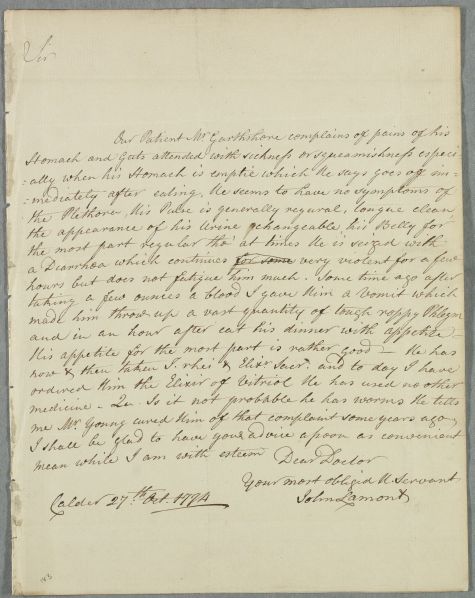 Sir
Our Patient Mr Garthshore complains of pains of his
Stomach and Guts attended with sickness or squeamishness especi-
-ally when his Stomach is emptie which He says goes off im-
-mediately after eating. He seems to have no symptoms of
the Plethora, His Pulse is generally regural, tongue clean,
the appearance of his Urine changeable his Belly for
the most part regular tho' at times He is seized with
a Diarrhœa which continues for some very violent for a few
hours but does not fatigue him much. Some time ago after
taking a few ounces a blood I gave Him a Vomit which
made him throw up a vast quantity of tough roppy Phlegm
and in an hour after eat his dinner with appetite —
His appetite for the most part is rather good — He has
now & then taken T. rhei & Elixr Sacr. and to day I have
ordered Him the Elixir of Vitriol He has used no other
medicine – Qu. Is it not probable he has worms He tells
me Mr Young cured Him of that complaint some years ago,
I shall be glad to have your advice a soon as convenient
mean while I am with esteem Dear Doctor
Your most obligd H. Servant
John Lamont
Calder 27th Oct. 1794